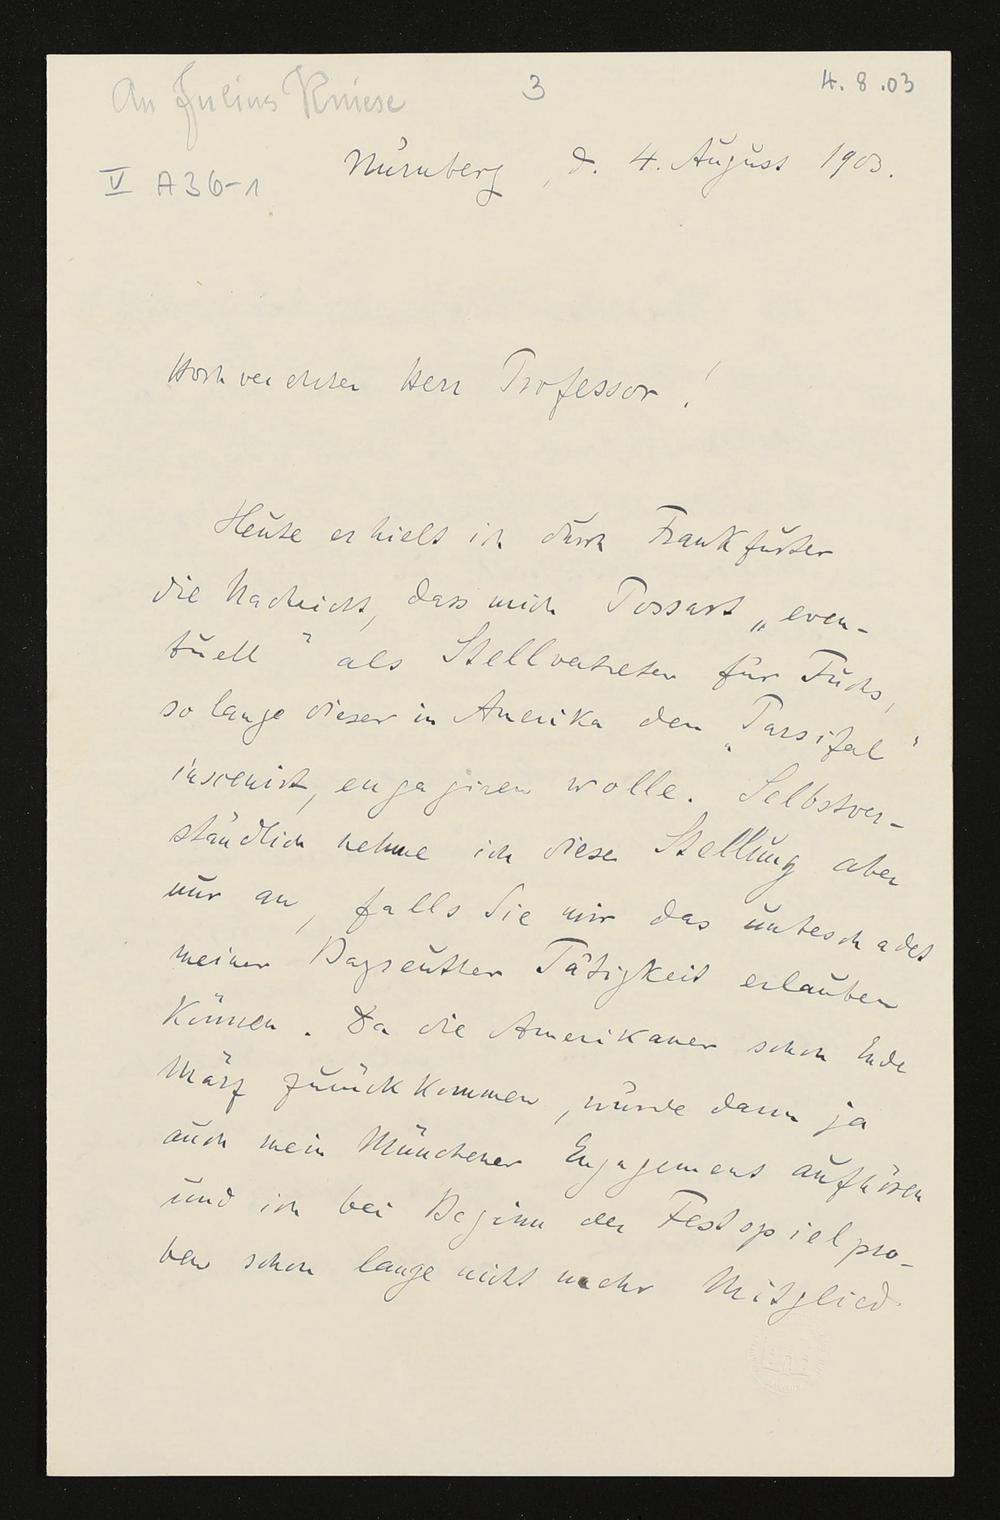 An Julius Kniese
3
4.8.03
V A36-1
Nürnberg, d. 4. August 1903.
Hochverehrter Herr Professor!
Heute erhielt ich durch Frankfurter
die Nachricht, dass mich Possart „even-
tuell" als Stellvertreter für Fuchs,
so lange dieser in Amerika den „Parsifal"
inscenirt, engagiren wolle. Selbstver-
ständlich nehme ich diese Stellung aber
nur an, falls Sie mir das unbeschadet
meiner Bayreuther Tätigkeit erlauben
können. Da die Amerikaner schon Ende
März zurückkommen, würde dann ja
auch mein Münchener Engagement aufhören
und ich bei Beginn der Festspielpro-
ben schon lange nicht mehr Mitglied